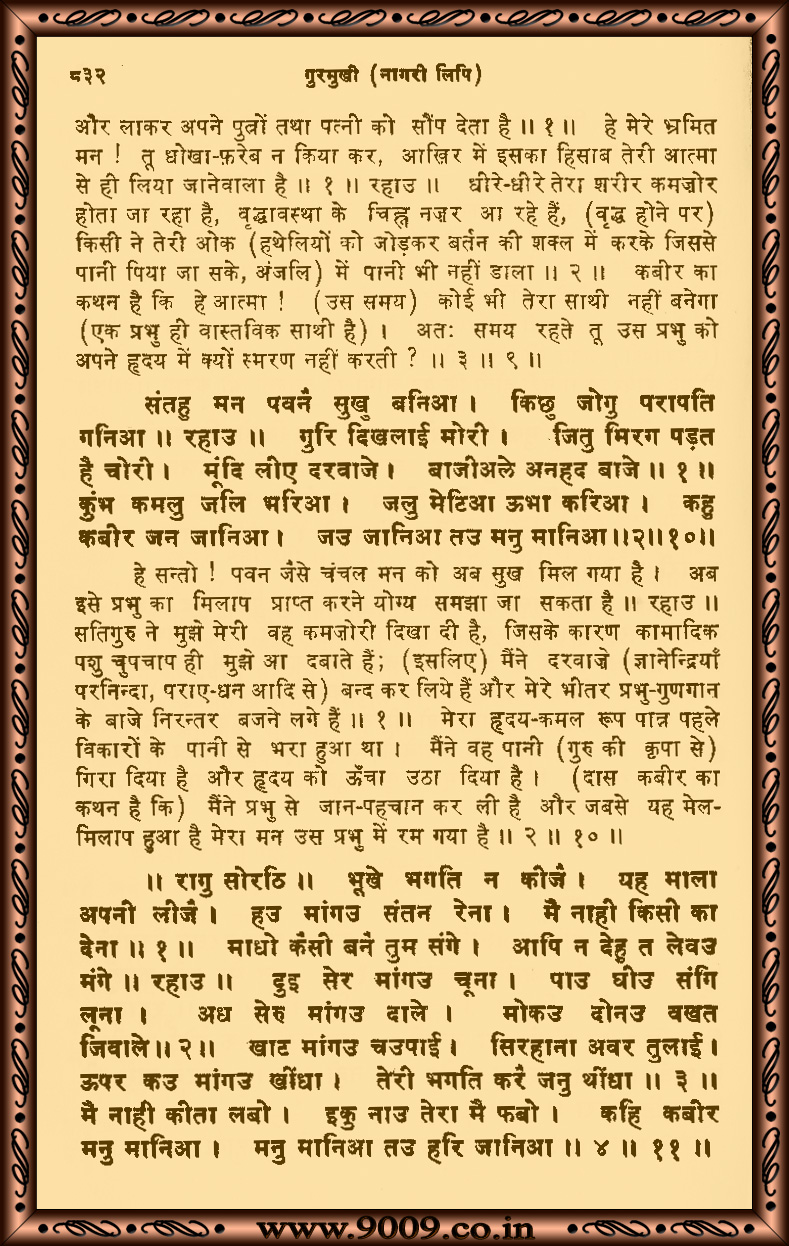 ८३२ गुरमुखी (नागरी लिपि)
और लाकर अपने पुत्रों तथा पत्नी को सौंप देता है ॥ १ ॥ हे मेरे भ्रमित
मन ! तू धोखा-फ़रेब न किया कर, आख़िर में इसका हिसाब तेरी आत्मा
से ही लिया जानेवाला है ॥ १ ॥ रहाउ ॥ धीरे-धीरे तेरा शरीर कमज़ोर
होता जा रहा है, वृद्धावस्था के चिह्न नज़र आ रहे हैं, (वृद्ध होने पर)
किसी ने तेरी ओक (हथेलियों को जोड़कर बर्तन की शक्ल में करके जिससे
पानी पिया जा सके, अंजलि) में पानी भी नहीं डाला ॥ २ ॥ कबीर का
कथन है कि हे आत्मा ! (उस समय) कोई भी तेरा साथी नहीं बनेगा
(एक प्रभु ही वास्तविक साथी है) । अतः समय रहते तू उस प्रभु को
अपने हृदय में क्यों स्मरण नहीं करती ? ॥ ३ ॥ ९ ॥
संतहु मन पवनै सुखु बनिआ । किछु जोगु परापति
गनिआ ॥ रहाउ ॥ गुरि दिखलाई मोरी । जितु मिरग पड़त
है चोरी । मूंदि लीए दरवाजे । बाजीअले अनहद बाजे ॥ १ ॥
कुंभ कमलु जलि भरिआ । जलु मेटिआ ऊभा करिआ । कहु
कबीर जन जानिआ । जउ जानिआ तउ मनु मानिआ ॥२॥१०॥
हे सन्तो ! पवन जैसे चंचल मन को अब सुख मिल गया है । अब
इसे प्रभु का मिलाप प्राप्त करने योग्य समझा जा सकता है ॥ रहाउ ॥
सतिगुरु ने मुझे मेरी वह कमज़ोरी दिखा दी है, जिसके कारण कामादिक
पशु चुपचाप ही मुझे आ दबाते हैं; (इसलिए) मैंने दरवाज़े (ज्ञानेन्द्रियाँ
परनिन्दा, पराए-धन आदि से) बन्द कर लिये हैं और मेरे भीतर प्रभु-गुणगान
के बाजे निरन्तर बजने लगे हैं ॥ १ ॥ मेरा हृदय-कमल रूप पात्र पहले
विकारों के पानी से भरा हुआ था । मैंने वह पानी (गुरु की कृपा से)
गिरा दिया है और हृदय को ऊँचा उठा दिया है । (दास कबीर का
कथन है कि) मैंने प्रभु से जान-पहचान कर ली है और जबसे यह मेल-
मिलाप हुआ है मेरा मन उस प्रभु में रम गया है ॥ २ ॥ १० ॥
॥ रागु सोरठि ॥ भूखे भगति न कीजै । यह माला
अपनी लीजै । हउ मांगउ संतन रेना । मै नाही किसी का
देना ॥ १ ॥ माधो कैसी बनै तुम संगे । आपि न देहु त लेवउ
मंगे ॥ रहाउ ॥ दुइ सेर मांगउ चूना । पाउ घीउ संगि
लूना । अध सेरु मांगउ दाले । मोकउ दोनउ वखत
जिवाले ॥ २ ॥ खाट मांगउ चउपाई । सिरहाना अवर तुलाई ।
ऊपर कउ मांगउ खींधा । तेरी भगति करै जनु थींधा ॥ ३ ॥
मै नाही कीता लबो । इकु नाउ तेरा मै फबो । कहि कबीर
मनु मानिआ । मनु मानिआ तउ हरि जानिआ ॥ ४ ॥ ११ ॥
www.9009.co.in